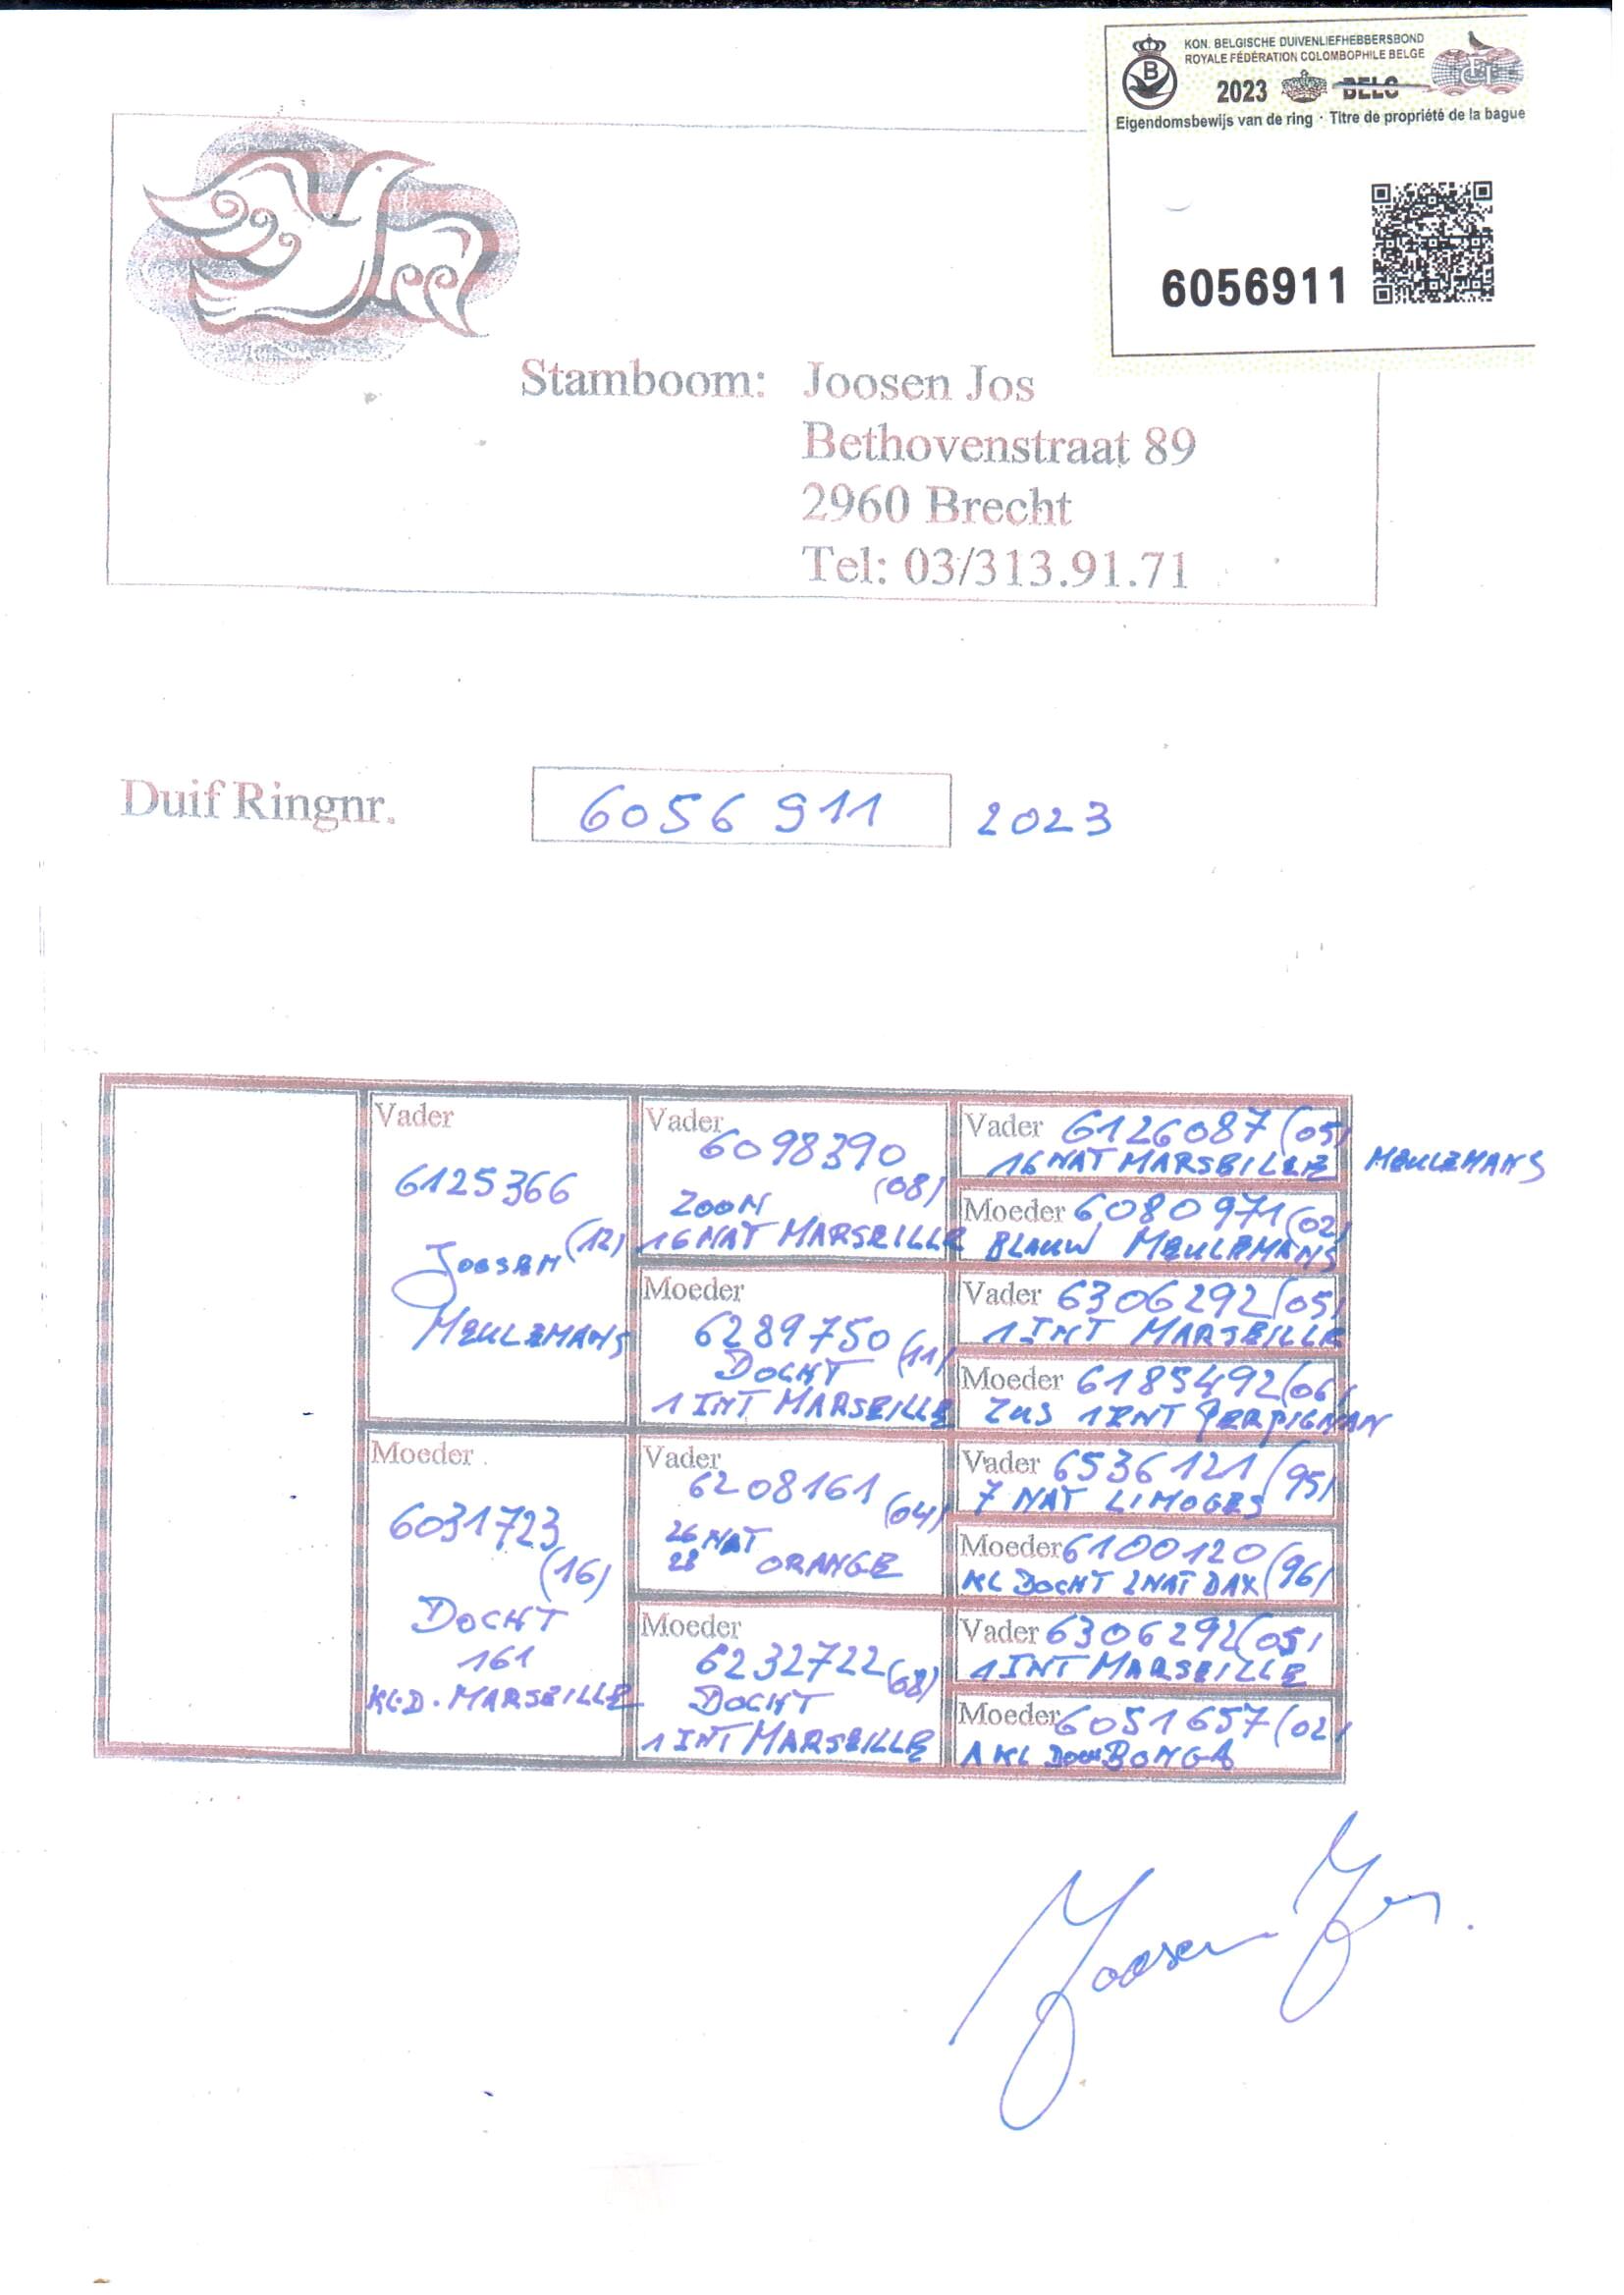 KON. BELGISCHE DUIVENLIEFHEBBERSBOND
ROYALE FÉDÉRATION COLOMBOPHILE BELGE
2023 BELG
Eigendomsbewijs van de ring · Titre de propriété de la bague
6056911
Stamboom: Joosen Jos
Bethovenstraat 89
2960 Brecht
Tel: 03/313.91.71
Duif Ringnr. 6056 911 2023
Vader
6125366
(12)
JOOSEN
MEULEMANS
Moeder
6031723
(16)
DOCHT
161
KL.D. MARSEILLE
Vader
6098390
(08)
ZOON
16 NAT MARSEILLE
Moeder
6289750 (11)
DOCHT
1 INT MARSEILLE
Vader
6208161
(04)
26 NAT
28 ORANGE
Moeder
6232722 (08)
DOCHT
1 INT MARSEILLE
Vader 6126087 (05)
16 NAT MARSEILLE MEULEMANS
Moeder 6080971 (02)
BLAUW MEULEMANS
Vader 6306292 (05)
1 INT MARSEILLE
Moeder 6185492 (06)
ZUS 1 INT PERPIGNAN
Vader 6536121 (95)
7 NAT LIMOGES
Moeder 6100120 (96)
KL DOCHT 2 NAT DAX
Vader 6306292 (05)
1 INT MARSEILLE
Moeder 6051657 (02)
A KL BONGA
Joosen Jos.